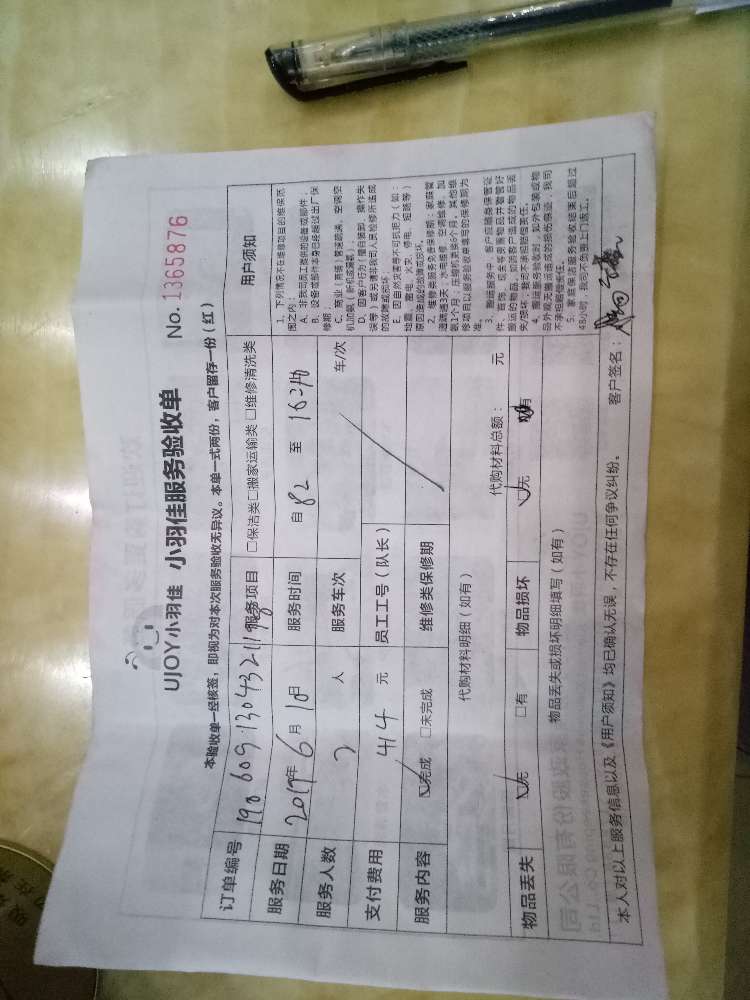 UJOY小羽佳 小羽佳服务验收单 No. 1365876
本验收单一经核签，即视为对本次服务验收无异议。本单一式两份，客户留存一份（红）
订单编号 服务项目 □保洁类□搬家运输类□维修清洗类
服务日期 年6月10日 服务时间 自 至
服务人数 2 人 服务车次 车/次
支付费用 414 元 员工工号（队长）
服务内容 ☑完成 □未完成 维修类保修期
代购材料明细（如有） 代购材料总额： 元
物品丢失 ☑无 □有 物品损坏 ☑无 有
物品丢失或损坏明细填写（如有）
用户须知
1、下列情况不在维修项目的维保范
围之内：
A、非我司员工提供的设备或部件；
B、设备或部件本身已经超过出厂保
修期
C、商业（商铺）管道疏通、空调空
机加氨（新机或漏氨）
D、因客户行为（擅自装卸、操作失
误等）或另请非我司人员检修所造成
的故障或损坏
E、因自然灾害等不可抗拒力（如：
地震、雷电、火灾、停电、短路等）
原因造成的故障或损坏。
2、维修类服务免费保修期：家庭管
道疏通3天；水电维修、空调维修、加
氨1个月；压缩机更换6个月，其他维
修项目以服务验收单填写的保修期为
准。
3、搬运服务中，客户应随身保管证
件、首饰、现金等贵重物品并看管好
搬运的物品，如因客户造成的物品丢
失/损坏，我司不承担赔偿责任。
4、搬运服务验收时，如外包装或物
品外观无搬运造成的损伤痕迹，我司
不承担赔偿责任。
5、家庭保洁服务验收结束后超过
48小时，我司不负责上门返工。
本人对以上服务信息以及《用户须知》均已确认无误，不存在任何争议纠纷。 客户签名：